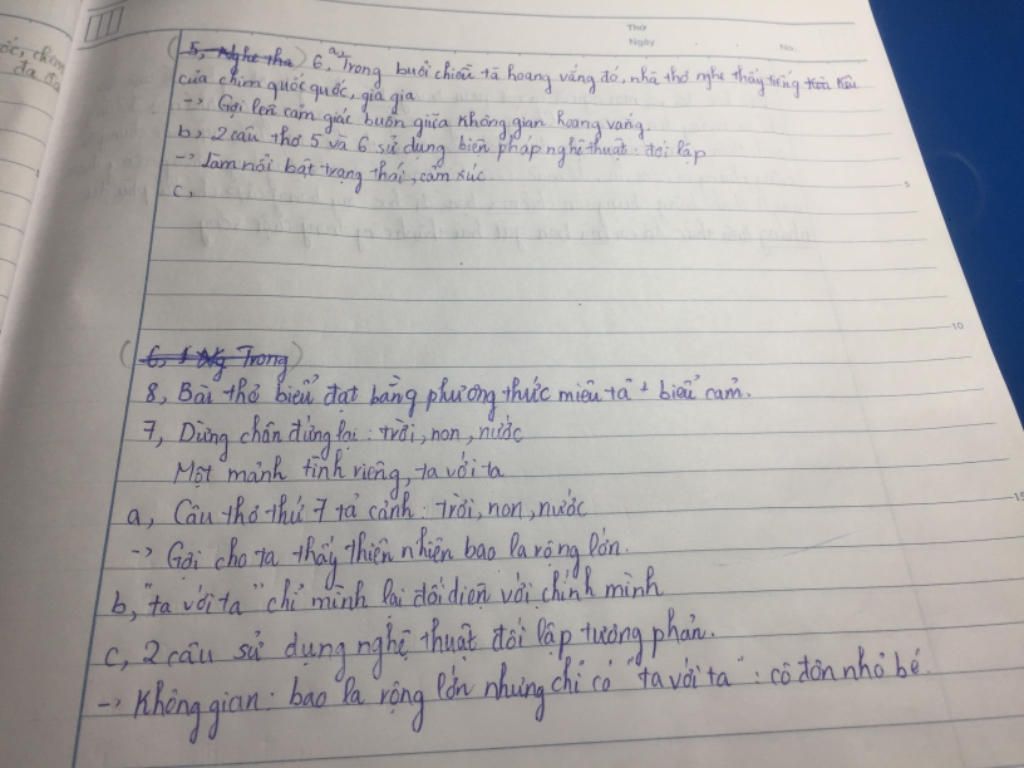 Thứ
Ngày
No.
(5, Nghe tha) 6, a, Trong buổi chiều tà hoang vắng đó, nhà thơ nghe thấy tiếng kêu
của chim quốc quốc, gia gia
-> Gợi lên cảm giác buồn giữa không gian hoang vắng.
b, 2 câu thơ 5 và 6 sử dụng biện pháp nghệ thuật: đối lập
-> Làm nổi bật trạng thái, cảm xúc
c,
5
10
(6, Trong)
8, Bài thơ biểu đạt bằng phương thức miêu tả + biểu cảm.
7, Dừng chân đứng lại: trời, non, nước
Một mảnh tình riêng, ta với ta
a, Câu thơ thứ 7 tả cảnh: trời, non, nước
15
-> Gợi cho ta thấy thiên nhiên bao la rộng lớn.
b, "ta với ta" chỉ mình lại đối diện với chính mình
c, 2 câu sử dụng nghệ thuật đối lập tương phản.
-> Không gian: bao la rộng lớn nhưng chỉ có "ta với ta": cô đơn nhỏ bé.